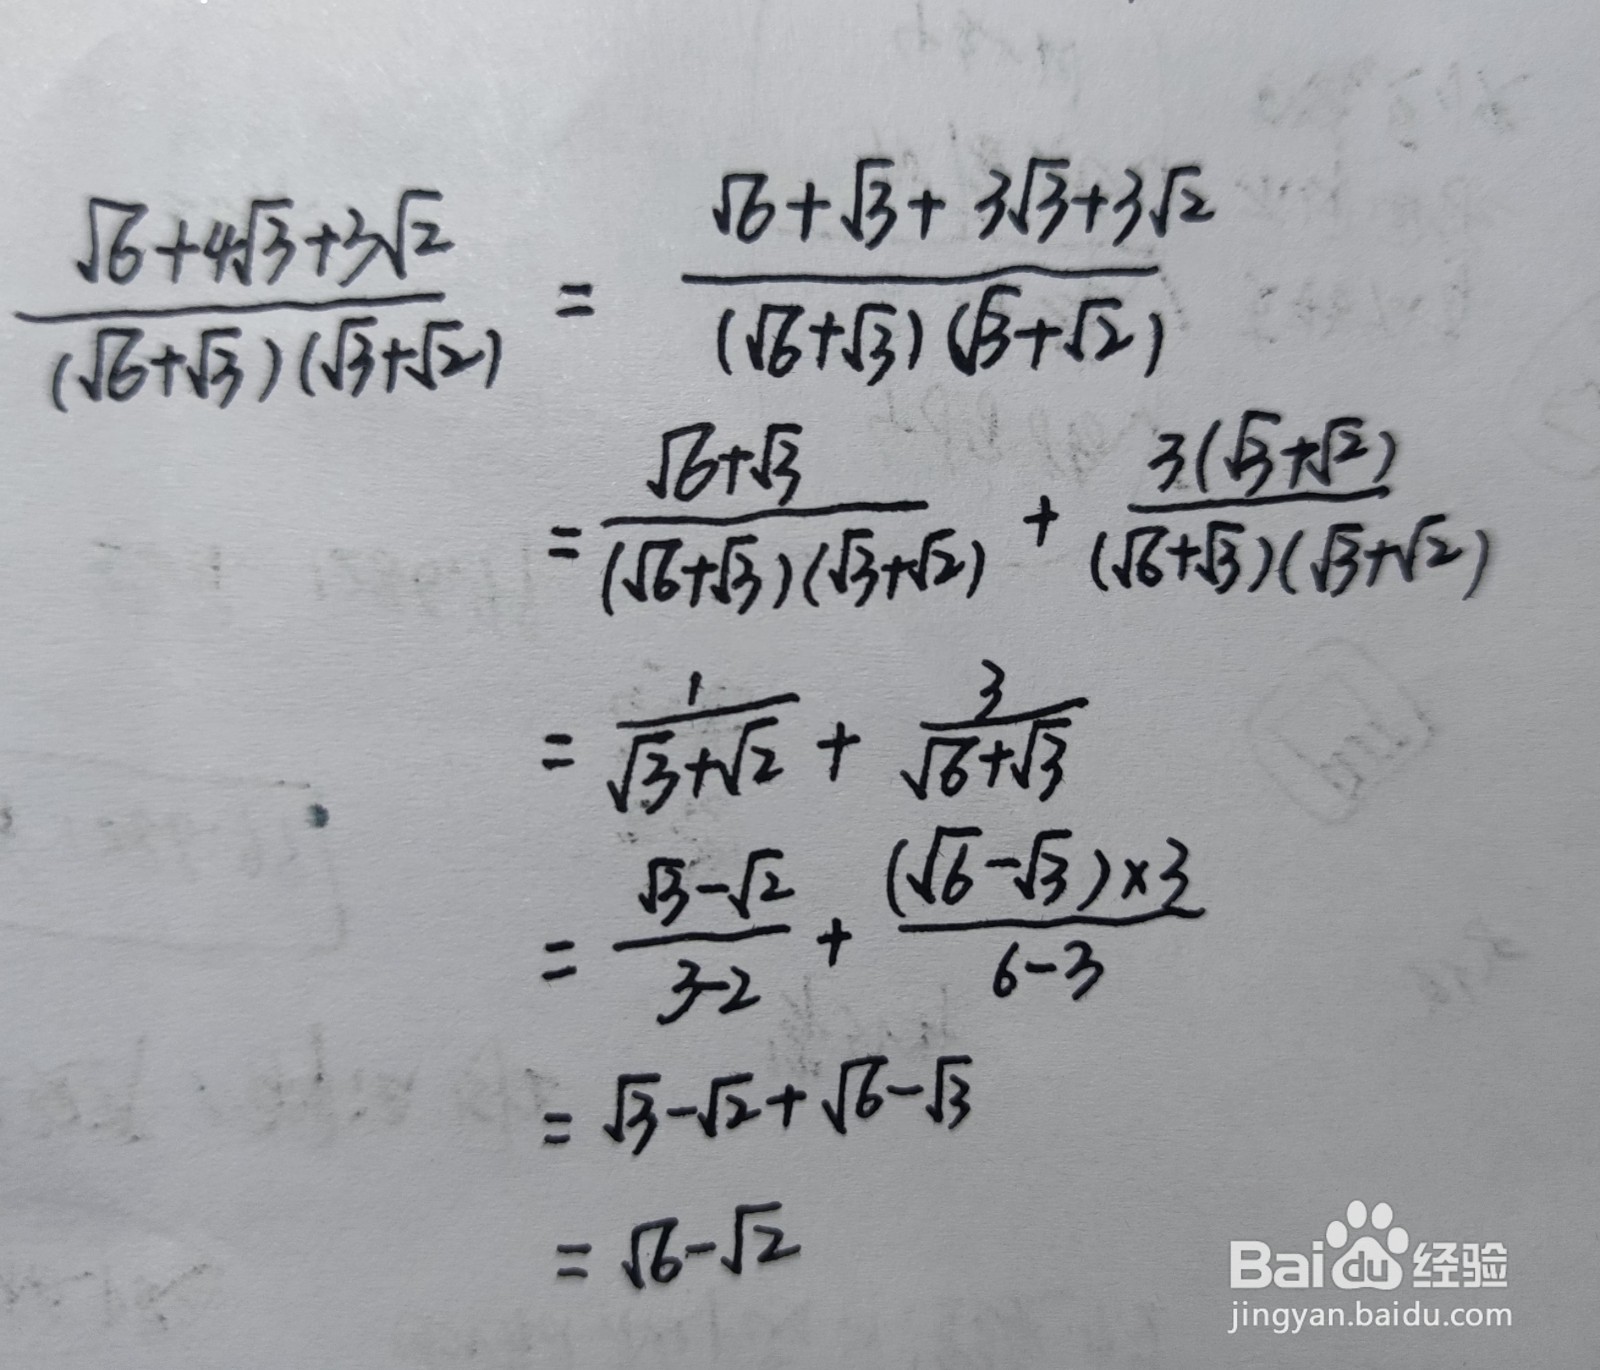 (√6+4√3+3√2)/((√6+√3)(√3+√2)) = (√6+√3+3√3+3√2)/((√6+√3)(√3+√2))
= (√6+√3)/((√6+√3)(√3+√2)) + 3(√3+√2)/((√6+√3)(√3+√2))
= 1/(√3+√2) + 3/(√6+√3)
= (√3-√2)/(3-2) + ((√6-√3)×3)/(6-3)
= √3-√2+√6-√3
= √6-√2
Bai du 经验
jingyan.baidu.com